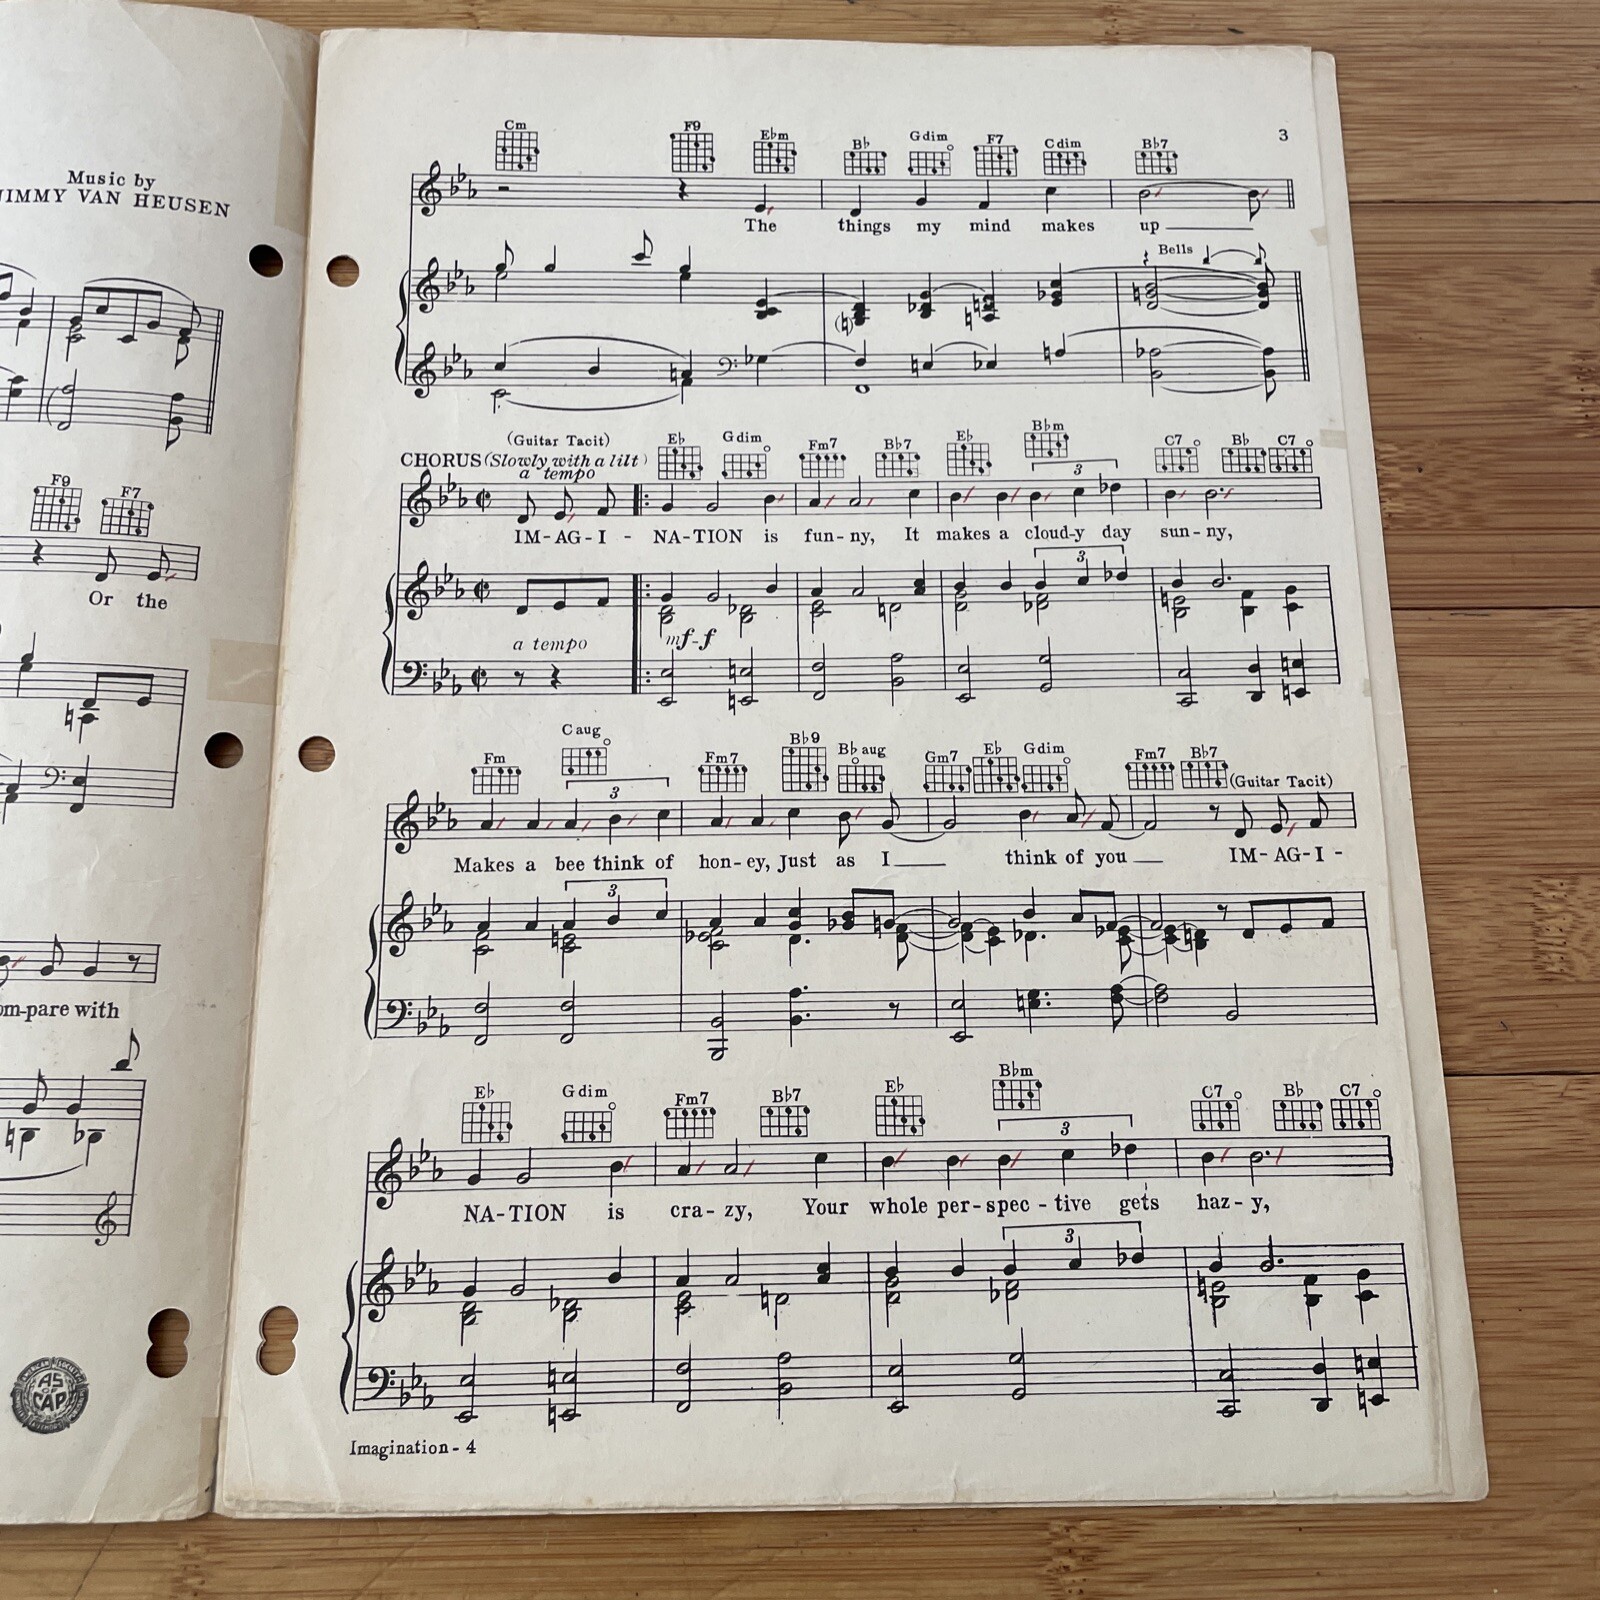 Music by
JIMMY VAN HEUSEN
F9 F7
Or the
om-pare with
AS
OF
CAP
3
Cm F9 E♭m B♭ Gdim F7 Cdim B♭7
The things my mind makes up
Bells
(Guitar Tacit)
CHORUS (Slowly with a lilt)
a tempo
E♭ Gdim Fm7 B♭7 E♭ B♭m C7 B♭ C7
3
IM-AG-I - NA-TION is fun-ny, It makes a cloud-y day sun-ny,
3
a tempo mf-f
Fm Caug Fm7 B♭9 B♭aug Gm7 E♭ Gdim Fm7 B♭7 (Guitar Tacit)
3
Makes a bee think of hon-ey, Just as I think of you IM-AG-I -
3
E♭ Gdim Fm7 B♭7 E♭ B♭m C7 B♭ C7
3
NA-TION is cra-zy, Your whole per-spec-tive gets haz-y,
3
Imagination - 4